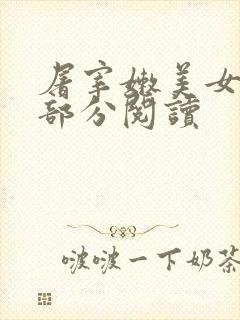 屠宰嫩美女
部分閱讀
啵啵一下奶茶